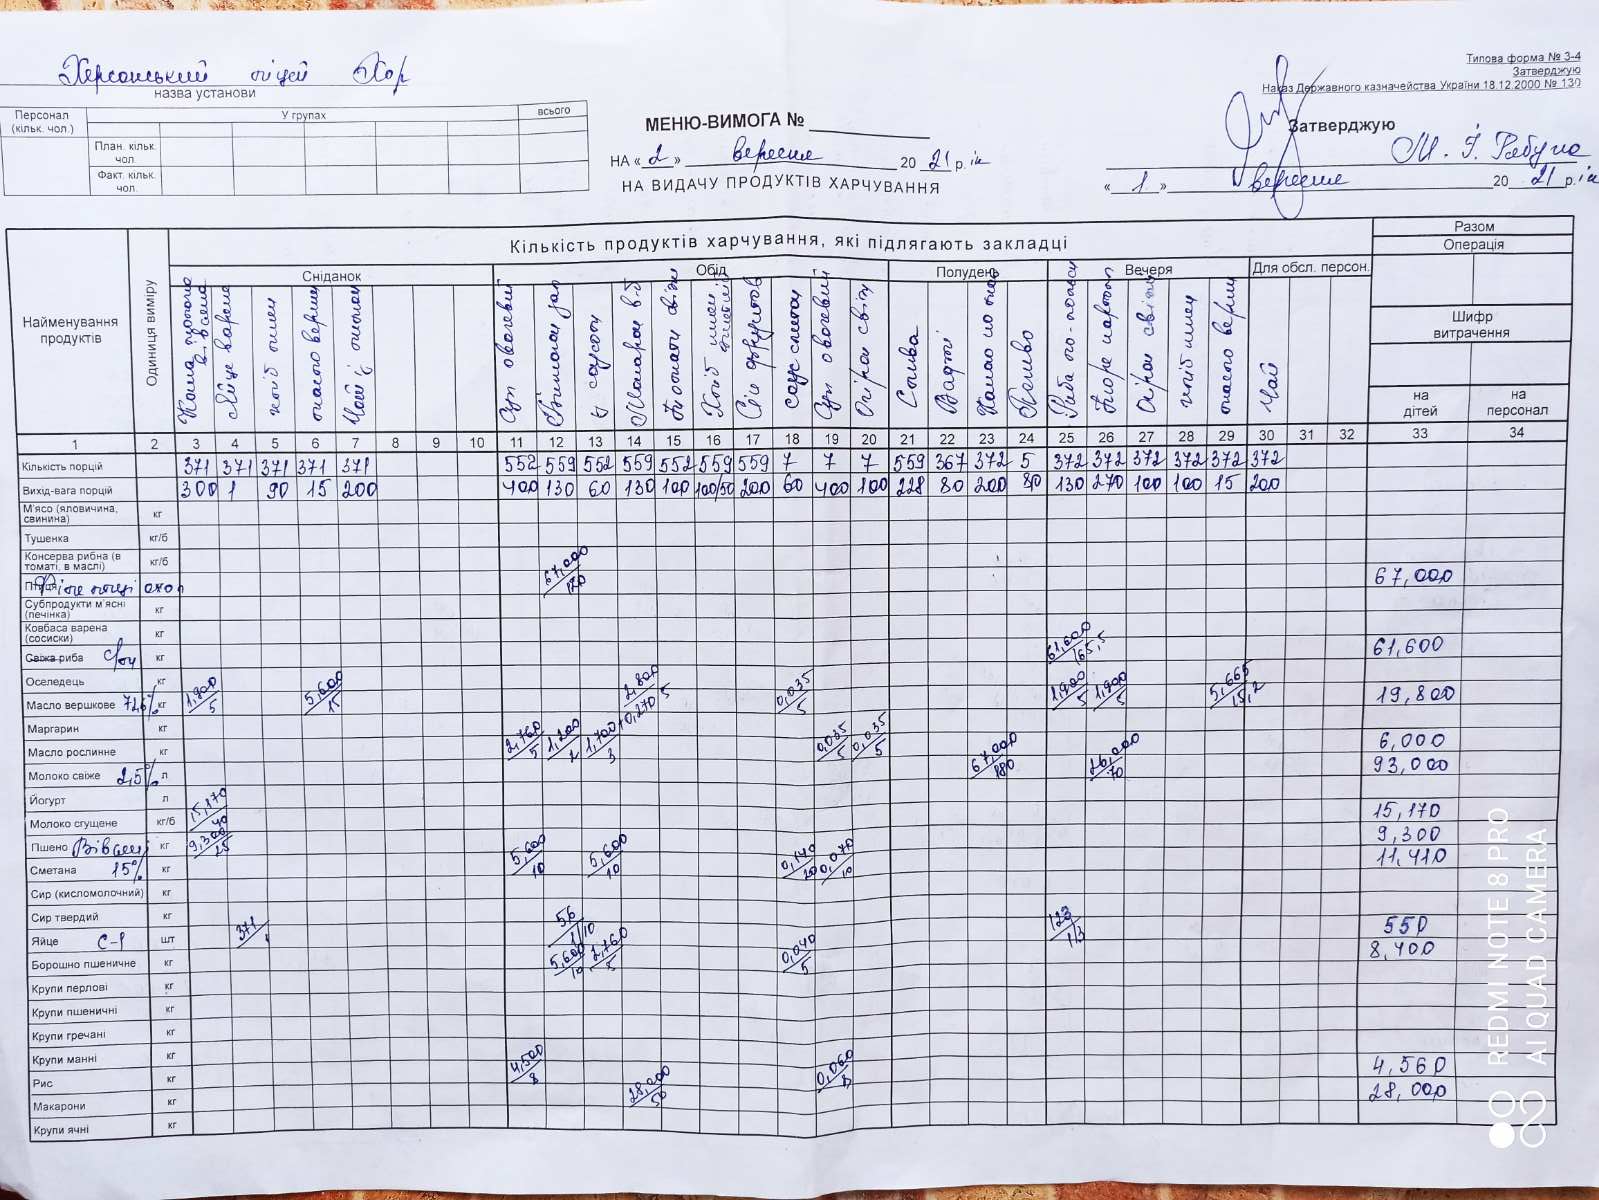 Херсонський ліцей ХОР
назва установи
Типова форма № 3-4
Затверджую
Наказ Державного казначейства України 18.12.2000 № 130
Персонал (кільк. чол.) У групах всього
План. кільк. чол.
Факт. кільк. чол.
МЕНЮ-ВИМОГА №
НА « 2 » вересня 20 21 р. ік
НА ВИДАЧУ ПРОДУКТІВ ХАРЧУВАННЯ
Затверджую
М. І. Рябуха
« 1 » вересня 20 21 р. ік
Найменування продуктів
Одиниця виміру
Кількість продуктів харчування, які підлягають закладці
Разом
Операція
Шифр витрачення
на дітей
на персонал
Сніданок Обід Полудень Вечеря Для обсл. персон.
Яйце варене
масло верш
Суп овочевий
Хліб пшен
Суп овочевий
Огірки свіжі
Слива
Вафлі
Какао
Пюре
Огірки свіжі
хліб пшен
масло верш
Чай
1 2 3 4 5 6 7 8 9 10 11 12 13 14 15 16 17 18 19 20 21 22 23 24 25 26 27 28 29 30 31 32 33 34
Кількість порцій 371 371 371 371 371 552 559 552 559 552 559 559 7 7 7 559 367 372 5 372 372 372 372 372 372
Вихід-вага порцій 300 1 90 15 200 400 130 60 130 100 100/50 200 60 400 100 228 80 200 80 130 270 100 100 15 200
М'ясо (яловичина, свинина) кг
Тушенка кг/б
Консерва рибна (в томаті, в маслі) кг/б
філе 67,000/120 67,000
Субпродукти м'ясні (печінка) кг
Ковбаса варена (сосиски) кг
Свіжа риба кг 61,600/165,5 61,600
Оселедець кг
Масло вершкове 72,6% кг 1,900/5 5,600/15 2,800/5 0,035/5 1,900/5 1,900/5 5,665/15,2 19,800
Маргарин кг
Масло рослинне кг 2,760/5 1,200/2 1,700/3 +0,270 0,035/5 0,035/5 6,000
Молоко свіже 2,5% л 67,000/180 26,000/70 93,000
Йогурт л
Молоко згущене кг/б 15,170/40 15,170
Пшено Вівсяні кг 9,300/25 9,300
Сметана 15% кг 5,600/10 5,600/10 0,140/20 0,070/10 11,410
Сир (кисломолочний) кг
Сир твердий кг
Яйце С-1 шт 371/1 56/1/10 123/1/3 550
Борошно пшеничне кг 5,600/10 2,760/5 0,040/5 8,400
Крупи перлові кг
Крупи пшеничні кг
Крупи гречані кг
Крупи манні кг
Рис кг 4,500/8 0,060/8 4,560
Макарони кг 28,000/50 28,000
Крупи ячні кг
REDMI NOTE 8 PRO
AI QUAD CAMERA